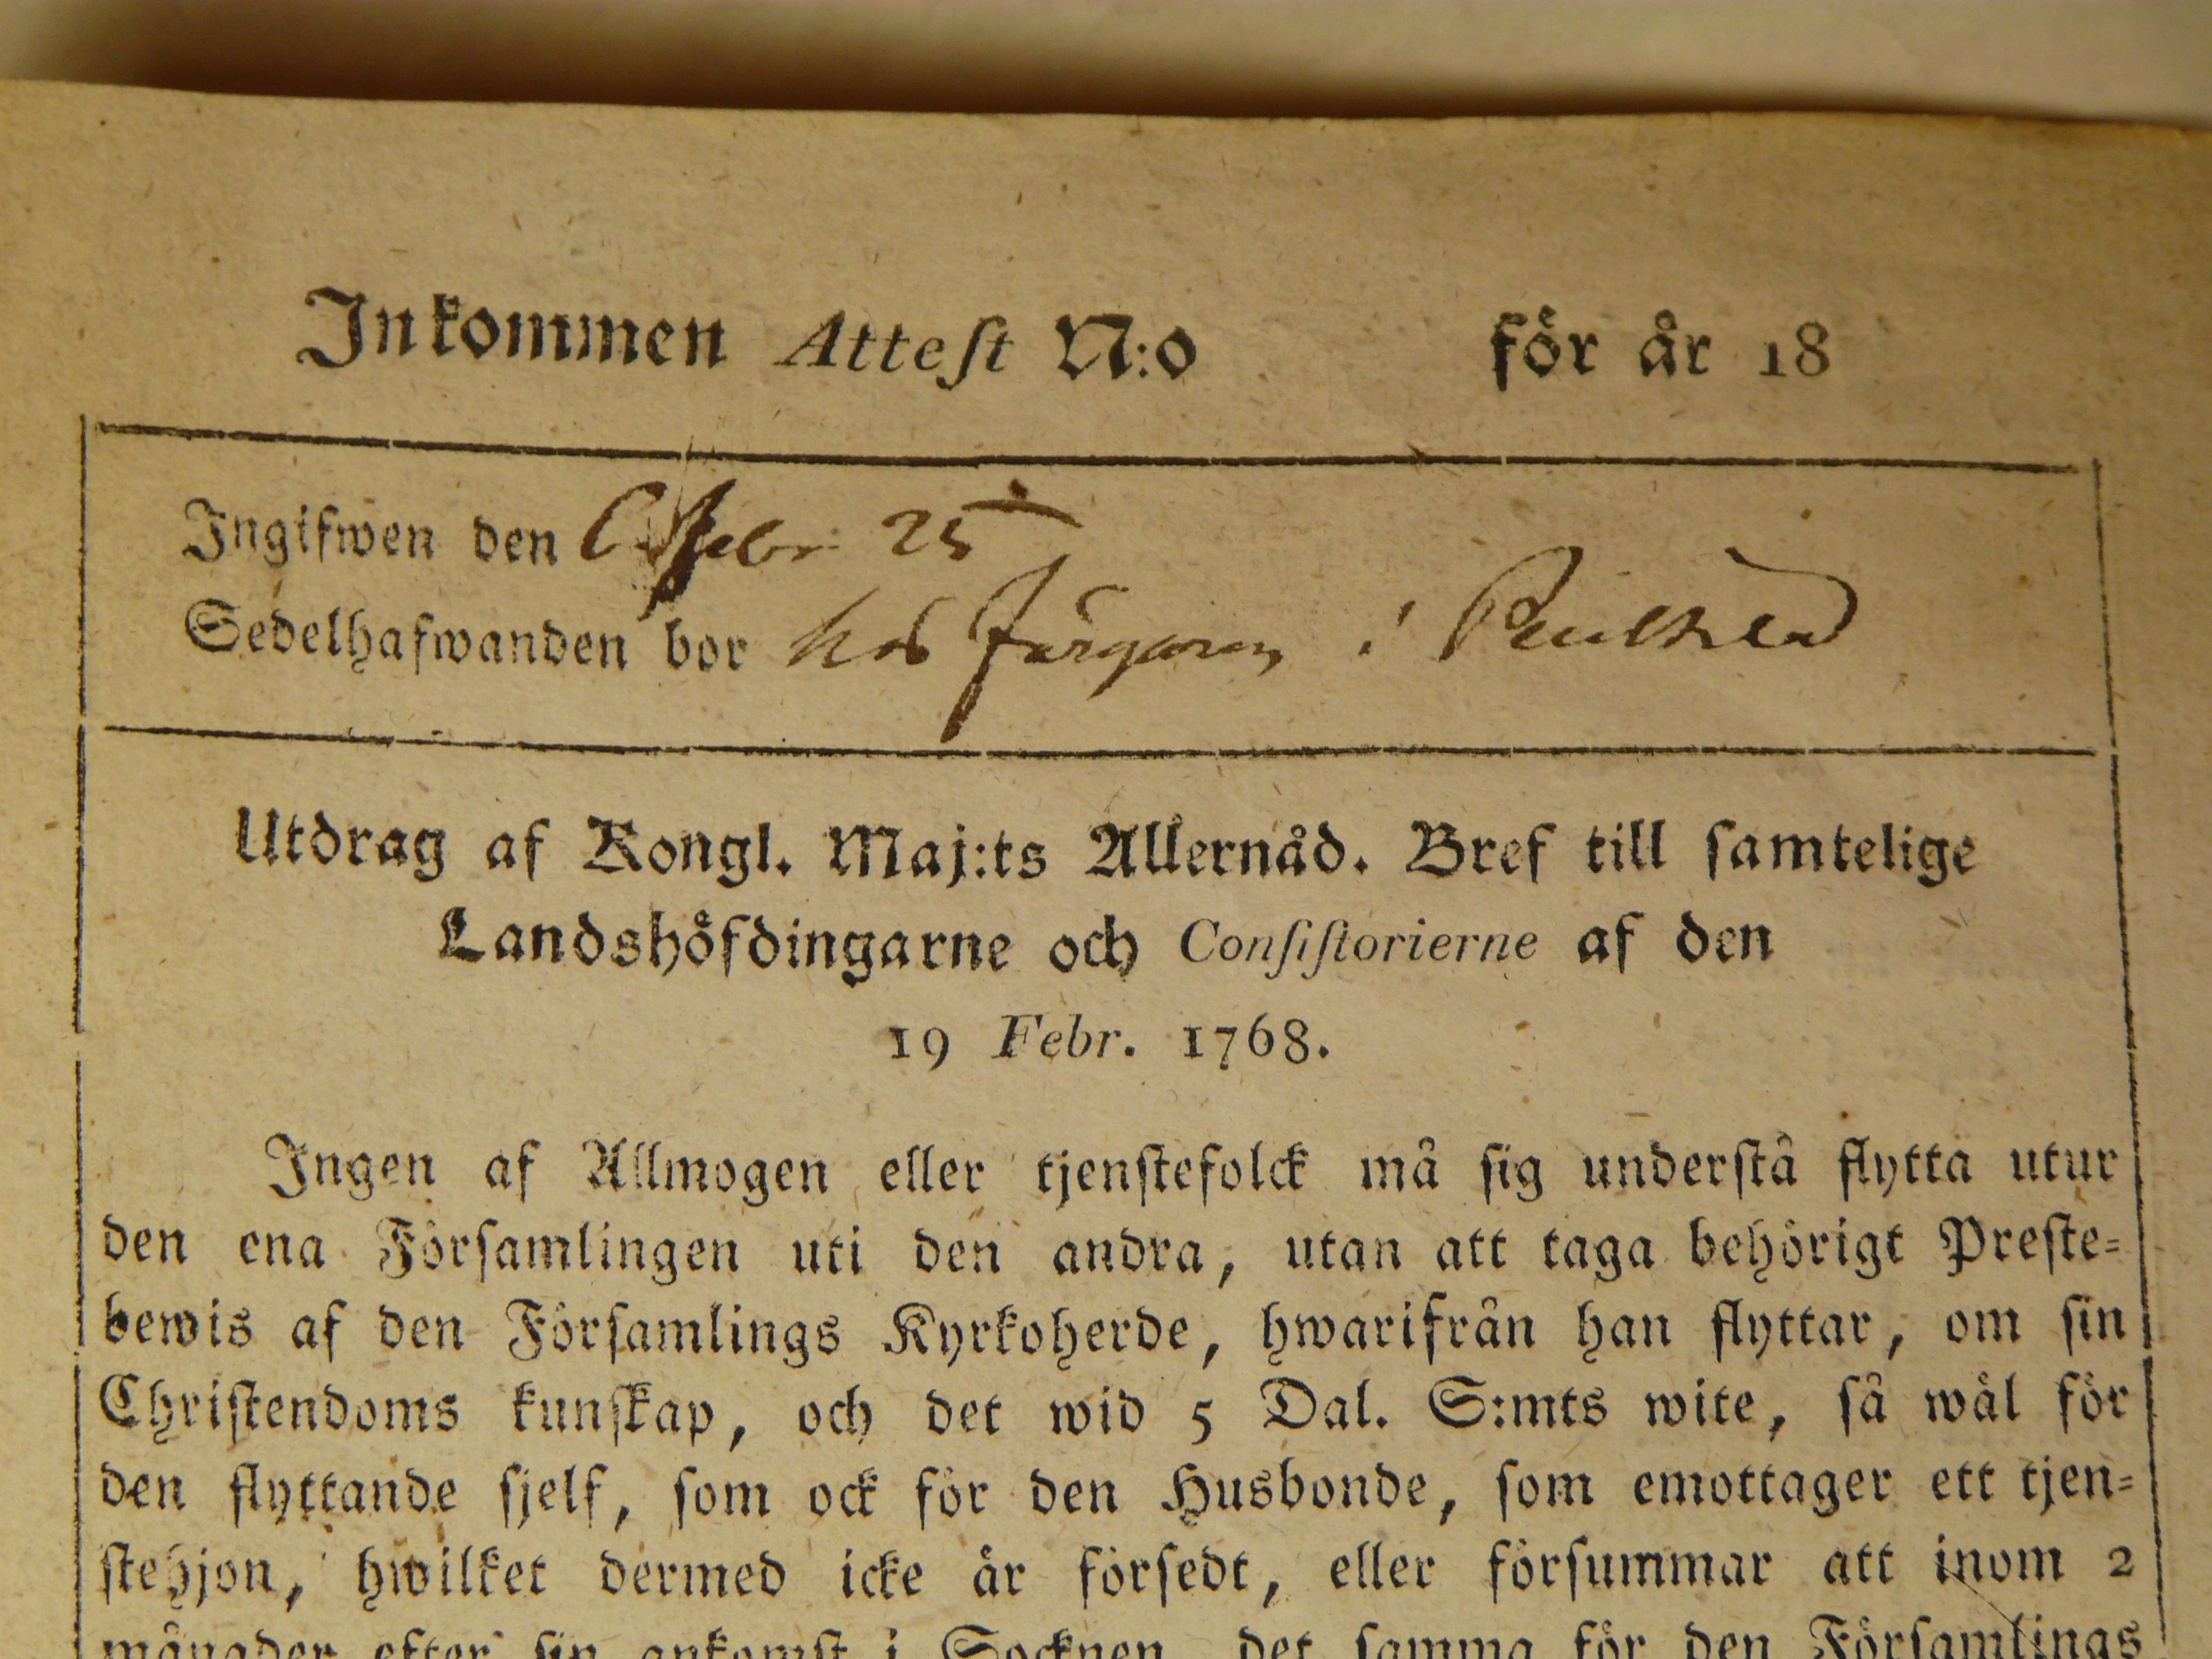 Inkommen Atteſt N:o för år 18
Ingifwen den Febr. 25
Sedelhafwanden bor hos färgaren i
Utdrag af Kongl. Maj:ts Allernåd. Bref till ſamtelige
Landshöfdingarne och Conſiſtorierne af den
19 Febr. 1768.
Ingen af Allmogen eller tjenſtefolck må ſig underſtå flytta utur
den ena Förſamlingen uti den andra, utan att taga behörigt Preſte=
bewis af den Förſamlings Kyrkoherde, hwarifrån han flyttar, om ſin
Chriſtendoms kunſkap, och det wid 5 Dal. S:mts wite, ſå wäl för
den flyttande ſjelf, ſom ock för den Husbonde, ſom emottager ett tjen=
ſtehjon, hwilket dermed icke är förſedt, eller förſummar att inom 2
månader efter ſin ankomſt i Socknen, det ſamma för den Förſamlings